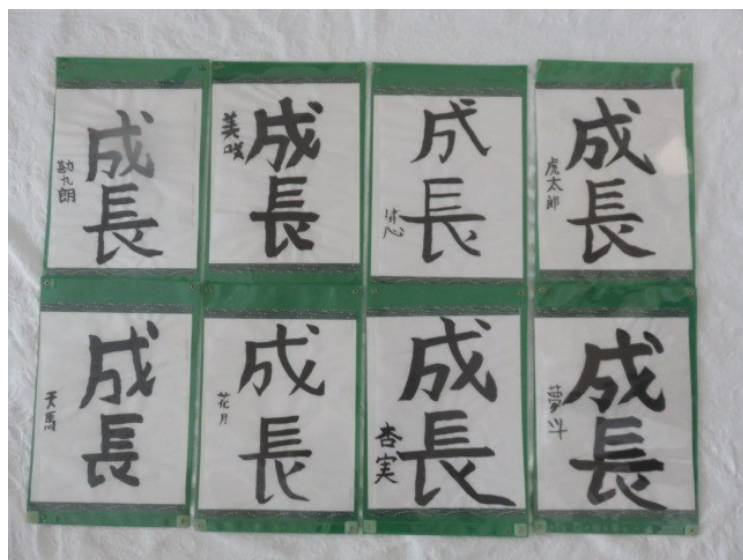 成長
勘九朗
成長
美咲
成長
健心
成長
虎太郎
成長
天馬
成長
花月
成長
杏実
成長
夢斗